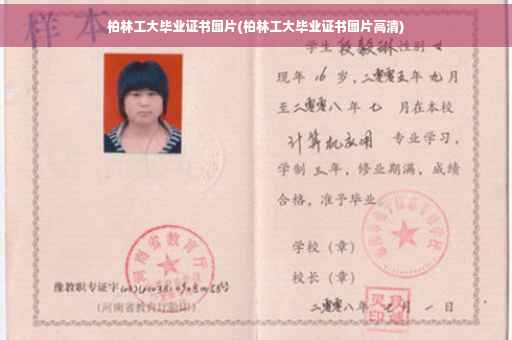 柏林工大毕业证书图片(柏林工大毕业证书图片高清)
样本
学生 段毅琳 性别 女
现年 16 岁，二零零五年 九月
至二零零八年 七 月在本校
计算机应用 专业学习，
学制 三年，修业期满，成绩
合格，准予毕业
学校（章）
校长（章）
二零零八年 七月 一日
河南省教育厅
豫教职专证字
(河南省教育厅验印)